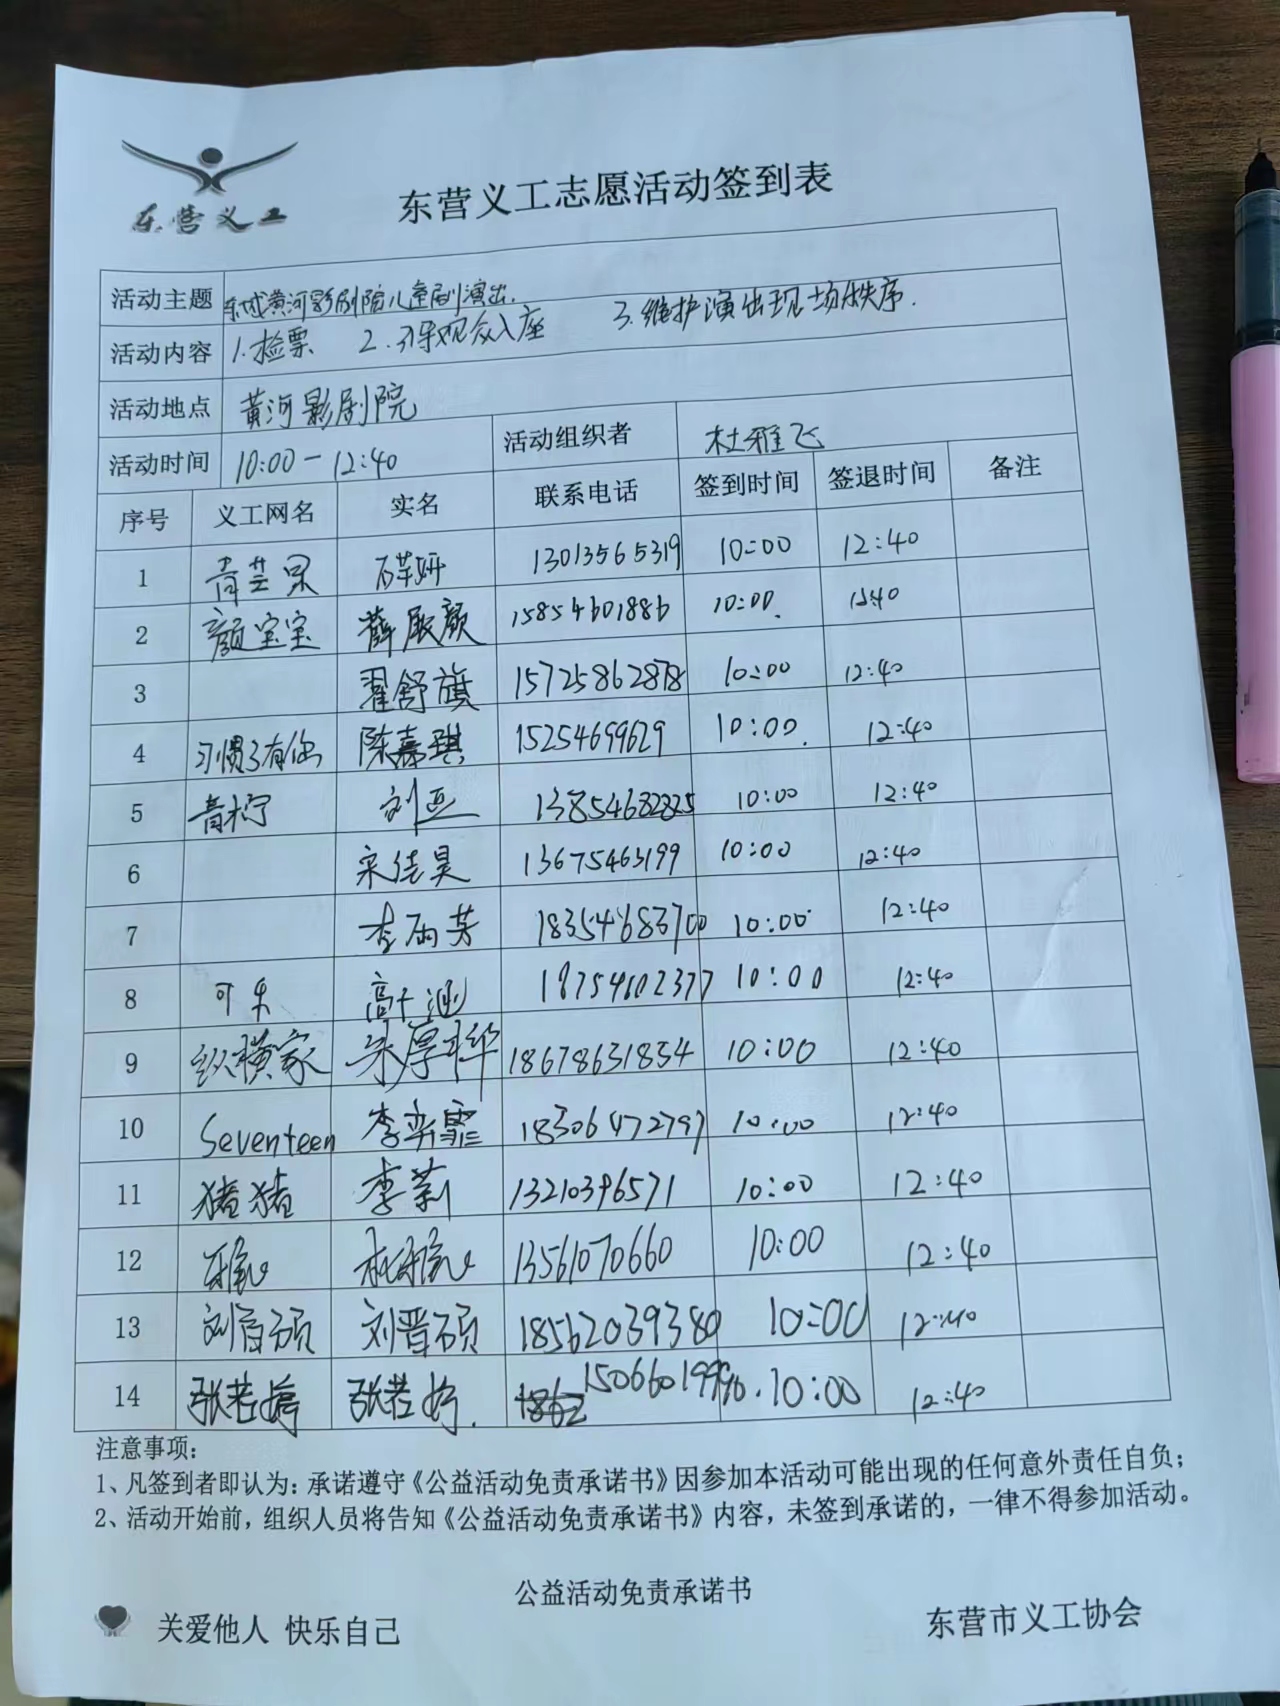 东营义工
东营义工志愿活动签到表
活动主题 东城黄河影剧院儿童剧演出.
活动内容 1.检票 2.引导观众入座 3.维护演出现场秩序.
活动地点 黄河影剧院
活动时间 10:00-12:40 活动组织者 杜雅飞
序号 义工网名 实名 联系电话 签到时间 签退时间 备注
1 青芸果 13013565319 10:00 12:40
2 颜宝宝 薛殿颜 15854601886 10:00. 12:40
3 翟舒旗 15725862878 10:00 12:40
4 习惯了有你 陈嘉琪 15254699629 10:00. 12:40
5 青柠 刘亚 13854682825 10:00 12:40
6 宋佳昊 13675463199 10:00 12:40
7 李雨芳 18354683700 10:00 12:40
8 可乐 高千涵 18754602377 10:00 12:40
9 纵横家 朱厚桦 18678631854 10:00 12:40
10 Seventeen 李奕霏 18306472797 10:00 12:40
11 猪猪 李莉 13210396571 10:00 12:40
12 13561070660 10:00 12:40
13 刘晋硕 刘晋硕 18562039380 10:00 12:40
14 张若婷 张若婷. 10:00 12:40
注意事项：
1、凡签到者即认为：承诺遵守《公益活动免责承诺书》因参加本活动可能出现的任何意外责任自负；
2、活动开始前，组织人员将告知《公益活动免责承诺书》内容，未签到承诺的，一律不得参加活动。
公益活动免责承诺书
关爱他人 快乐自己
东营市义工协会